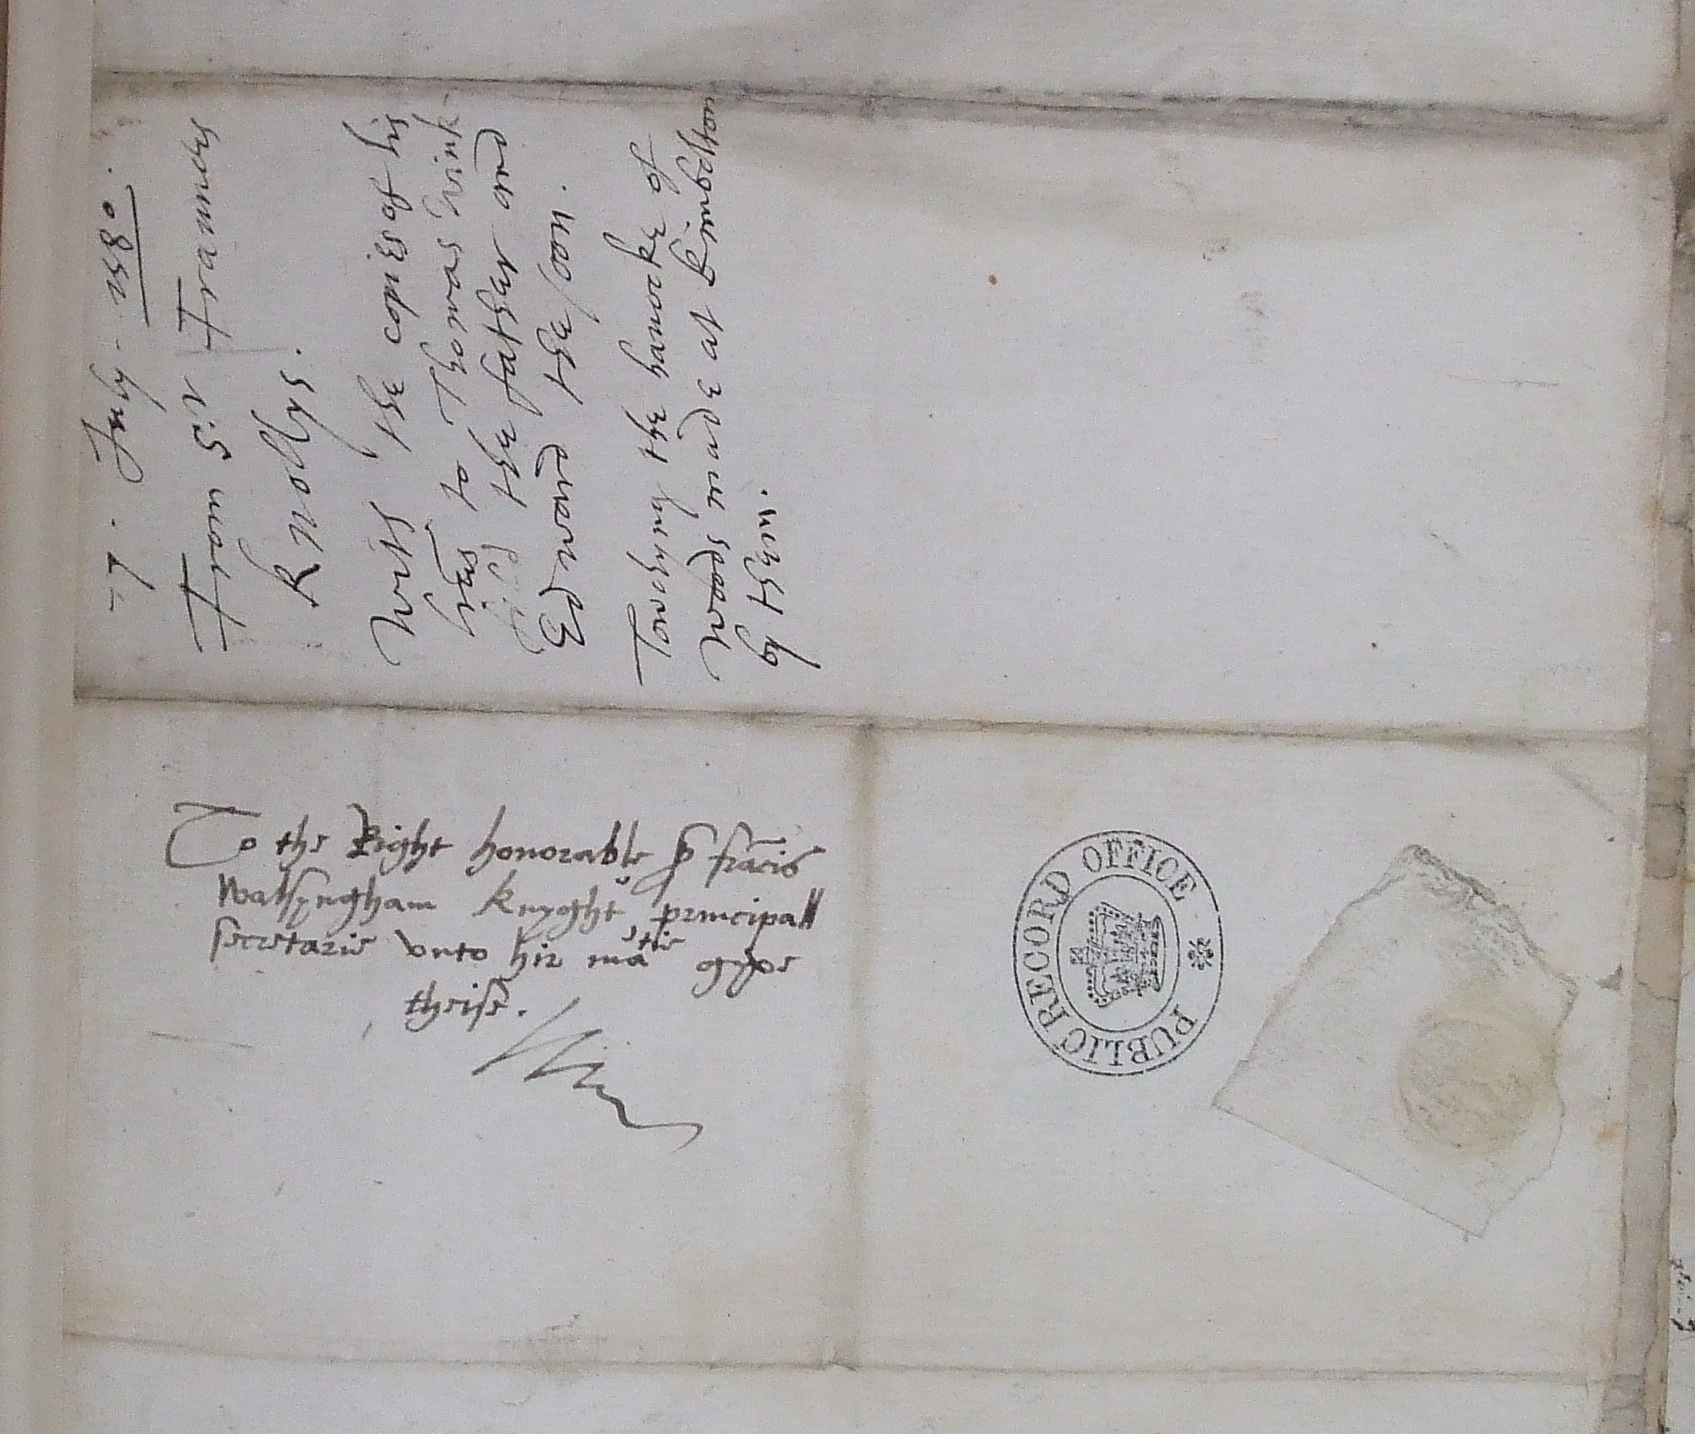 7. July. 1580.
From sir Frauncys
Knollys.
With the copies of his
lres to Thomas Wink
field the father and
Edward the soon.
Towching the hauocke of
woodes made at Kimbolton
by them.
To the Right honorable Sr frācis
Walsyngham Knyght principall
secretarie vnto hir matie gyve
theise.
PUBLIC RECORD OFFICE